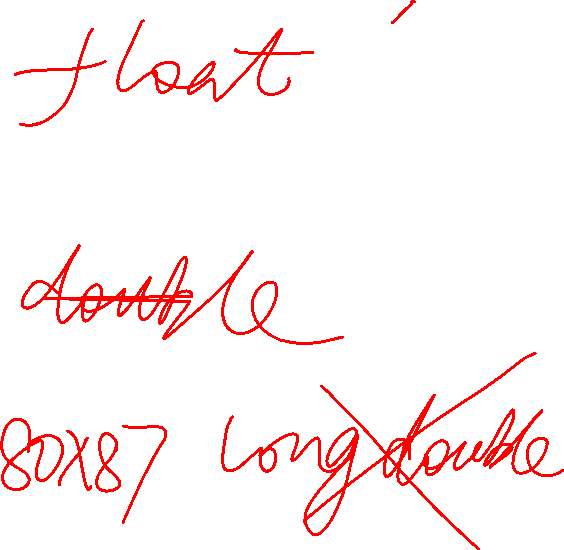 float
double
80X87 long double